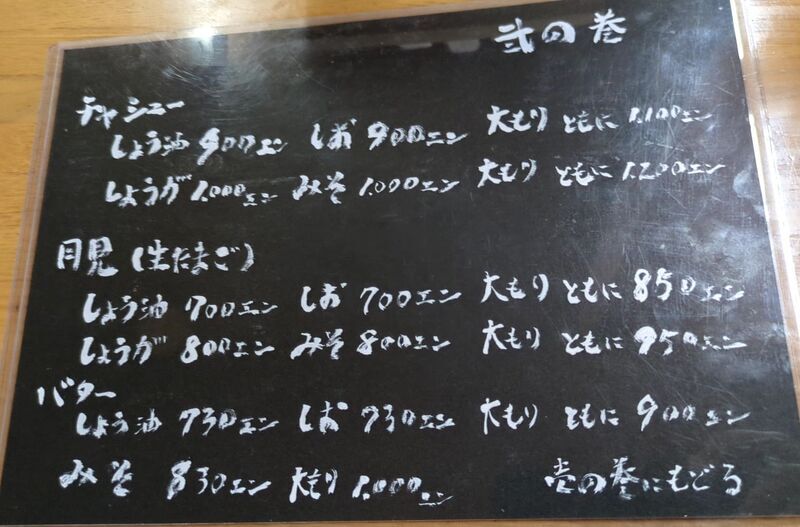 弐の巻
チャシュー
しょう油 900エン しお 900エン 大もり ともに 1,100エン
しょうが 1,000エン みそ 1,000エン 大もり ともに 1,200エン
月見(生たまご)
しょう油 700エン しお 700エン 大もり ともに 850エン
しょうが 800エン みそ 800エン 大もり ともに 950エン
バター
しょう油 730エン しお 730エン 大もり ともに 900エン
みそ 830エン 大もり 1,000エン 壱の巻にもどる